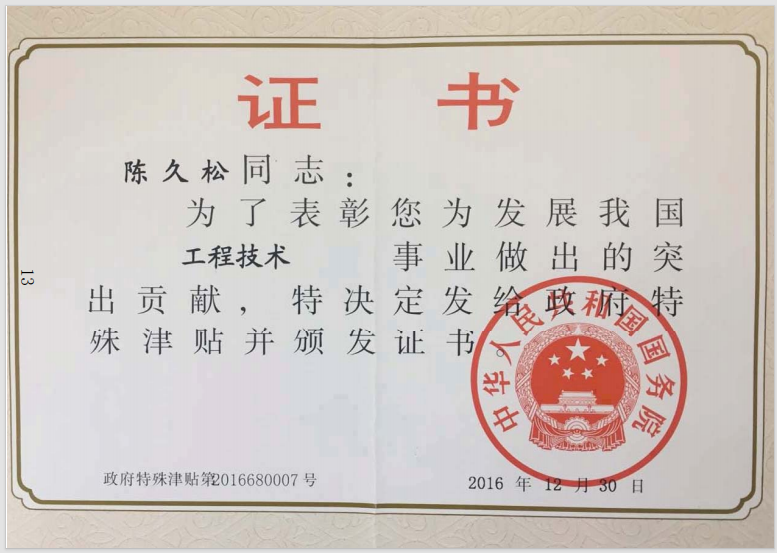 证书
陈久松同志：
为了表彰您为发展我国
工程技术 事业做出的突
出贡献，特决定发给政府特
殊津贴并颁发证书。
中华人民共和国国务院
政府特殊津贴第2016680007号
2016 年 12 月 30 日
13